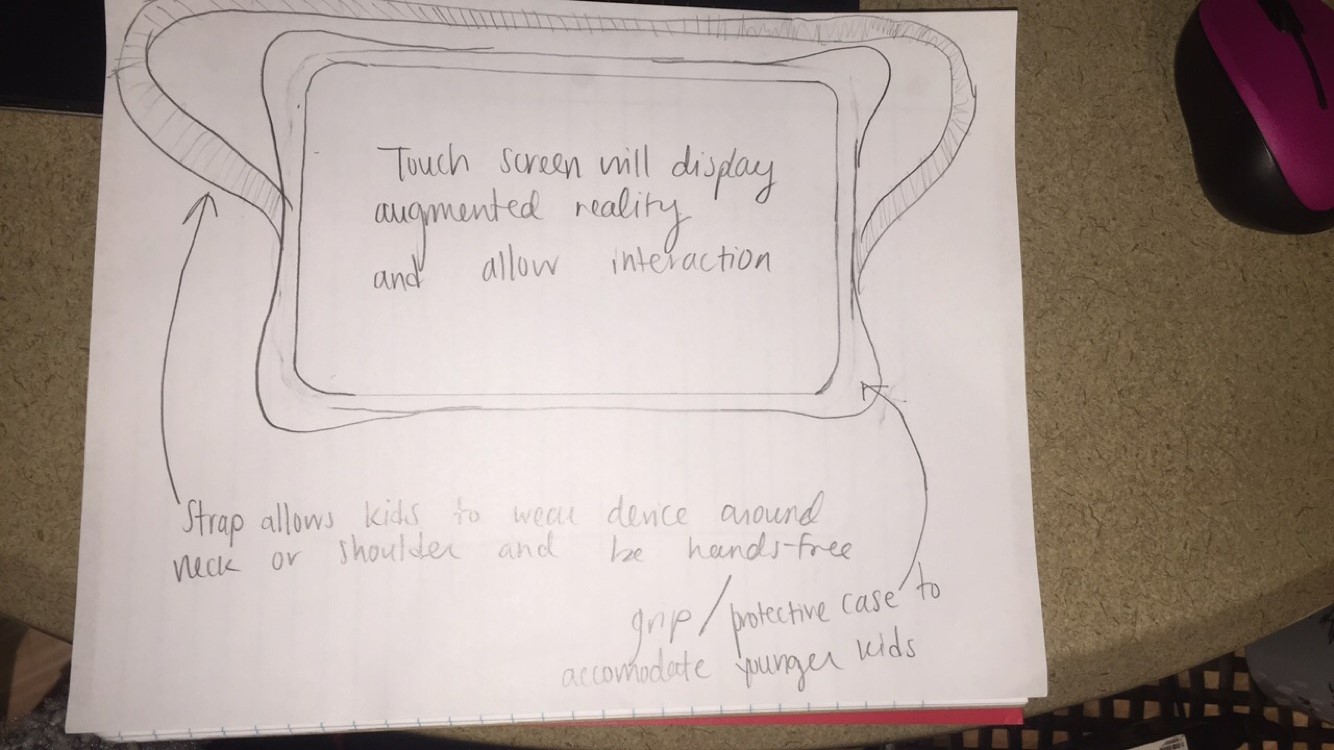 Touch screen will display
augmented reality
and allow interaction
Strap allows kids to wear device around
neck or shoulder and be hands-free
grip/protective case to
accomodate younger kids